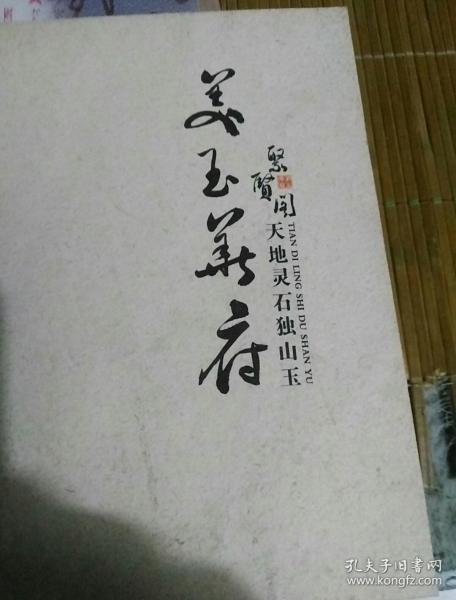 美玉華府
聚賢閣
天地灵石独山玉
TIAN DI LING SHI DU SHAN YU
孔夫子旧书网
www.kongfz.com